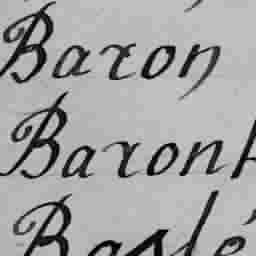 Baron
Baront
Baslé